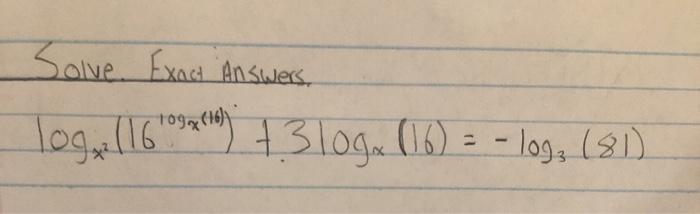 Solve. Exact Answers.
log_{x^2}(16^{log_x(16)}) + 3log_x(16) = -log_3(81)